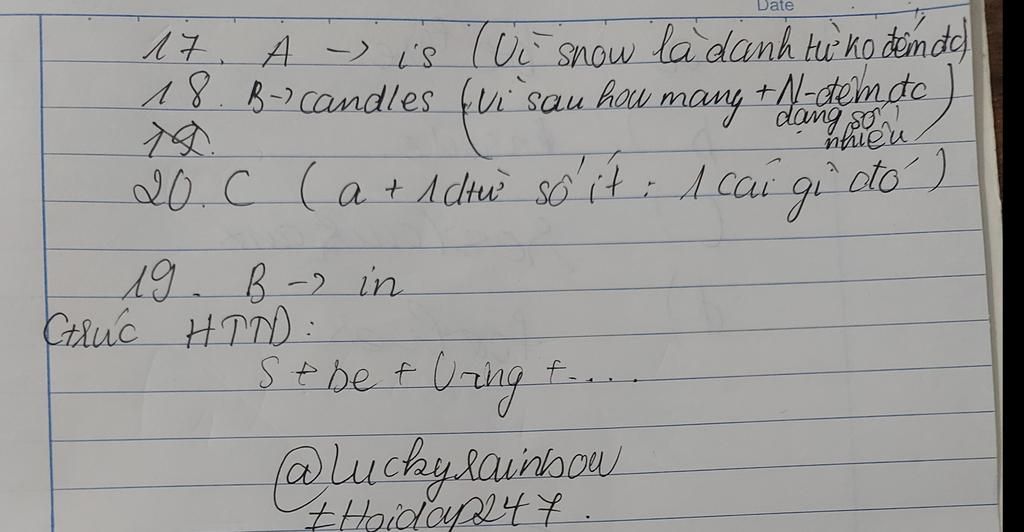 Date
17. A → is (Vì snow là danh từ ko đếm đc)
18. B → candles (vì sau how many + N-đếm đc
dạng số
nhiều)
19.
20. C (a + 1 dtừ số ít : 1 cái gì đó)
19. B → in
Ctrúc HTTD:
S + be + V-ing + ....
@luckyrainbow
#Hoidap247.